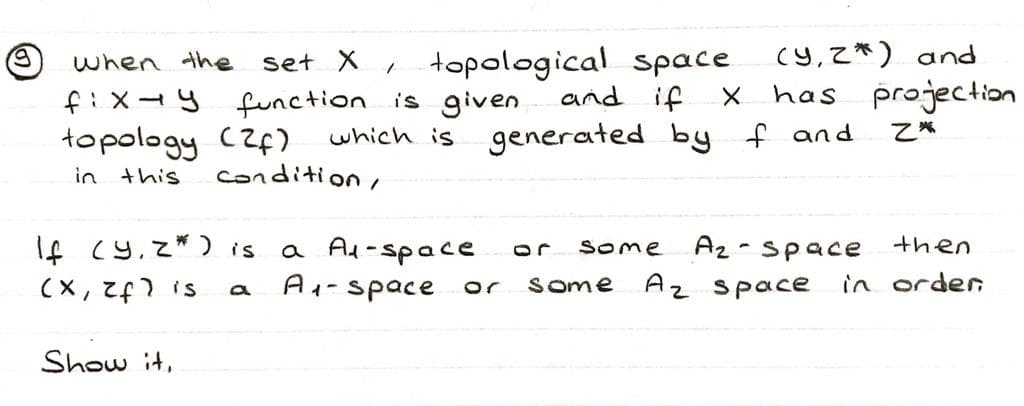 ⑨ when the set X , topological space (y,Z*) and
f: X→y function is given and if X has projection
topology (Zf) which is generated by f and Z*
in this condition,
If (y,Z*) is a A1-space or some A2-space then
(X,Zf) is a A1-space or some A2 space in order.
Show it.